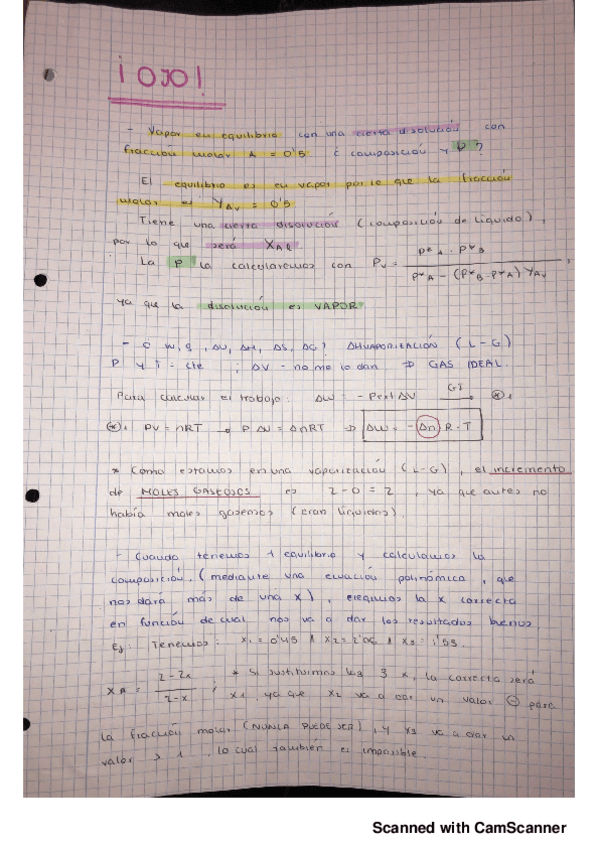 ¡OJO!
- Vapor en equilibrio con una cierta disolución con
fracción molar A = 0'5 ¿ composición y P?
El equilibrio es en vapor por lo que la fracción
molar es YAV = 0'5
Tiene una cierta disolución (composición de líquido),
por lo que será XAL.
La P la calcularemos con Pv = P*A · P*B / P*A - (P*B - P*A) YAV,
ya que la disolución es VAPOR.
- ¿ W, q, ΔU, ΔH, ΔS, ΔG? ΔHVAPORIZACIÓN (L-G)
P y T = cte ; ΔV - no me lo dan ⇒ GAS IDEAL.
Para calcular el trabajo: ΔW = - Pext ΔV GI → (*).
(*). PV = nRT → PΔV = ΔnRT ⇒ ΔW = - Δn R·T
* Como estamos en una vaporización (L-G), el incremento
de MOLES GASEOSOS es 2-0 = 2, ya que antes no
había moles gaseosos (eran líquidos).
- Cuando tenemos 1 equilibrio y calculamos la
composición, (mediante una ecuación polinómica, que
nos dará más de una x), elegimos la x correcta
en función de cual nos va a dar los resultados buenos.
Ej: Tenemos: x1 = 0'45 ∧ x2 = 2'06 ∧ x3 = 1'55.
XA = 2-2x / 2-x ; * Si sustituimos las 3 x, la correcta será
x1, ya que x2 va a dar un valor ⊖ para
la fracción molar (NUNCA PUEDE SER), y x3 va a dar un
valor > 1, lo cual también es imposible.
Scanned with CamScanner